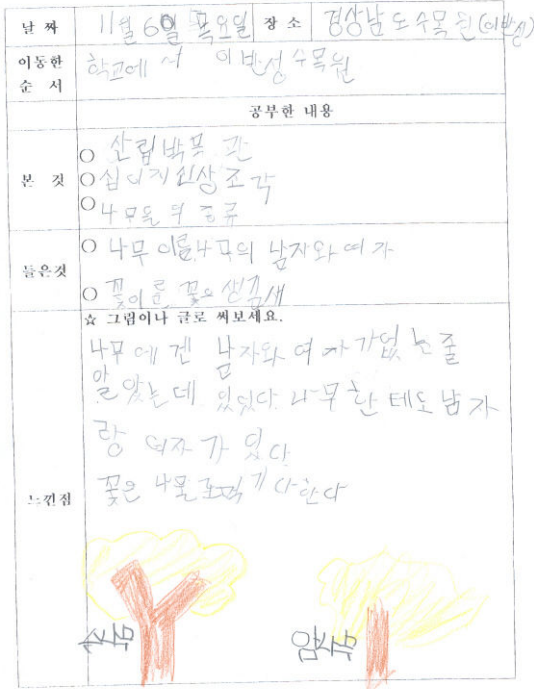 날 짜 11월 6일 목요일 장 소 경상남도수목원(이반성)
이동한 순 서 학교에서 이반성수목원
공부한 내용
본 것
○ 산림박물관
○ 십이지신상조각
○ 나무들의 종류
들은것
○ 나무이름 나무의 남자와 여자
○ 꽃이름 꽃의 생김새
느낀점
☆ 그림이나 글로 써보세요.
나무에겐 남자와 여자가없는줄
알았는데 있었다. 나무한테도 남자
랑 여자가 있다
꽃은 나물로먹기다한다